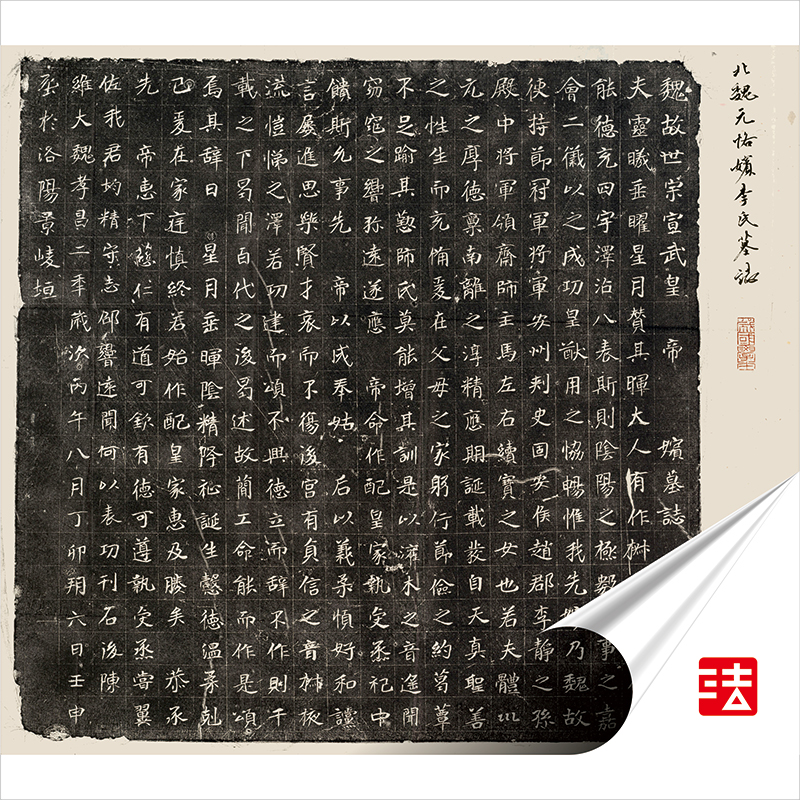 北魏元恪嬪李氏墓誌
魏故世宗宣武皇 帝 嬪墓誌
夫靈曦垂曜星月贊其暉大人有作椒
能德充四宇澤洽八表斯則陰陽之極 事之嘉
會二儀以之成功皇猷用之協暢惟我先嬪乃魏故
使持節冠軍將軍安州刾史固安侯趙郡李靜之孫
殿中將軍領齋師主馬左右續寶之女也若夫體巛
元之厚德稟南離之淳精應期誕載發自天真聖善
之性生而充備爰在父母之家躬行節儉之約葛蕈
不足踰其懃師氏莫能增其訓是以灌木之音遠聞
窈窕之響弥遠遂應 帝命作配皇家執 烝祀中
饋斯允事先 帝以成奉姑 后以義柔慎好和讜
言屢進思樂賢才哀而不傷後宮有貞信之音椒掖
流愷悌之澤若功建而頌不興德立而辞不作則千
載之下曷聞百代之後曷述故簡工命能而作是頌
焉其辞曰 星月垂暉陰精降祉誕生懿德溫柔剋
己爰在家庭慎終若始作配皇家惠及媵矣 恭承
先 帝惠下慈仁有道可欽有德可遵執 烝甯翼
佐我君 精守志邵響遠聞何以表功刊石後陳
維大魏孝昌二年歲次丙午八月丁卯朔六日壬申
窆於洛陽景崚垣
法